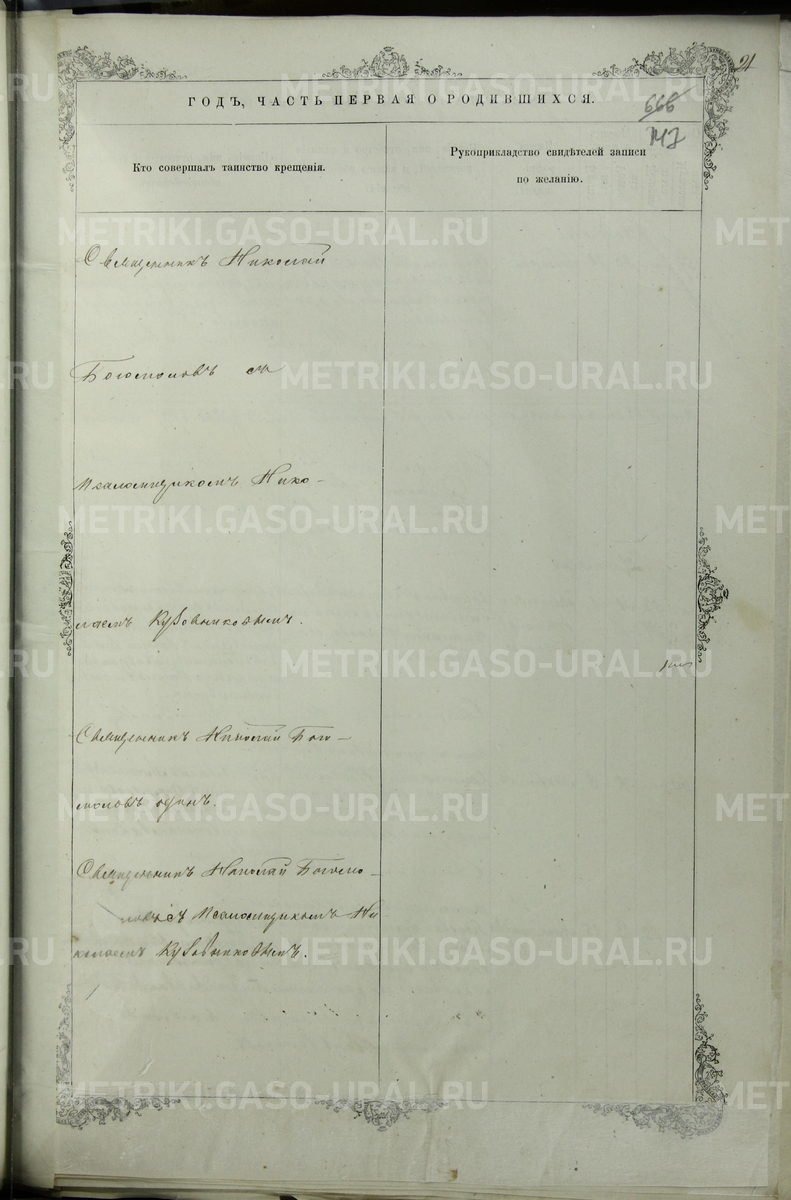 21
ГОДЪ, ЧАСТЬ ПЕРВАЯ О РОДИВШИХСЯ.
666
147
Кто совершалъ таинство крещенія.
Рукоприкладство свидѣтелей записи
по желанію.
Священникъ Николай
Богомоловъ съ
псаломщикомъ Нико-
лаемъ Кубовниковымъ.
Священникъ Николай Бого-
моловъ одинъ.
Священникъ Николай Богомо-
ловъ съ Псаломщикомъ Ни
колаемъ Кубовниковымъ.
METRIKI.GASO-URAL.RU